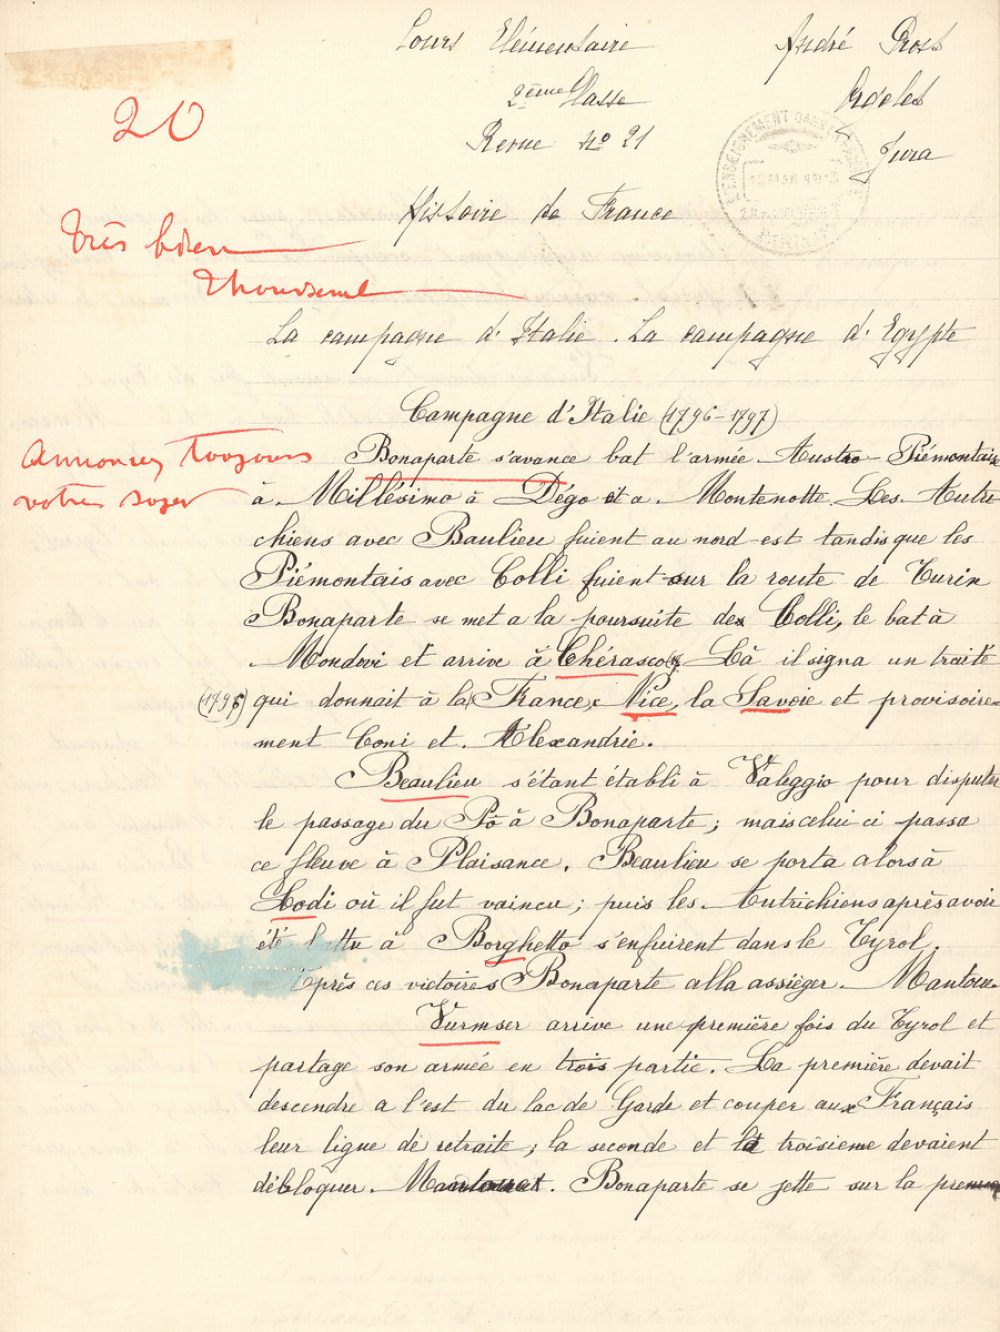 Cours Elémentaire
André Prost
2ème Classe
Ardelet
Revue No 21
Jura
20
L'ENSEIGNEMENT DANS LA FAMILLE
Histoire de France
Très bien
La campagne d'Italie. La campagne d'Egypte
Campagne d'Italie (1796-1797)
Annoncez toujours
votre sujet
Bonaparte s'avance bat l'armée Austro-Piémontaise
à Millésimo à Dégo et a Montenotte. Les Autri
chiens avec Baulieu fuient au nord-est tandis que les
Piémontais avec Colli fuient sur la route de Turin
Bonaparte se met a la poursuite de Colli, le bat à
Mondovi et arrive à Chérasco. Là il signa un traité
(1796) qui donnait à la France, Nice, la Savoie et provisoire-
ment Coni et Alexandrie.
Beaulieu s'étant établi à Valeggio pour disputer
le passage du Pô à Bonaparte; mais celui ci passa
ce fleuve à Plaisance. Beaulieu se porta alors à
Lodi où il fut vaincu; puis les Autrichiens après avoir
été battu à Borghetto s'enfuirent dans le Tyrol.
Après ces victoires Bonaparte alla assiéger Mantoue.
Vurmser arrive une première fois du Tyrol et
partage son armée en trois partie. La première devait
descendre a l'est du lac de Garde et couper aux Français
leur ligne de retraite; la seconde et la troisieme devaient
débloquer Mantoue. Bonaparte se jette sur la